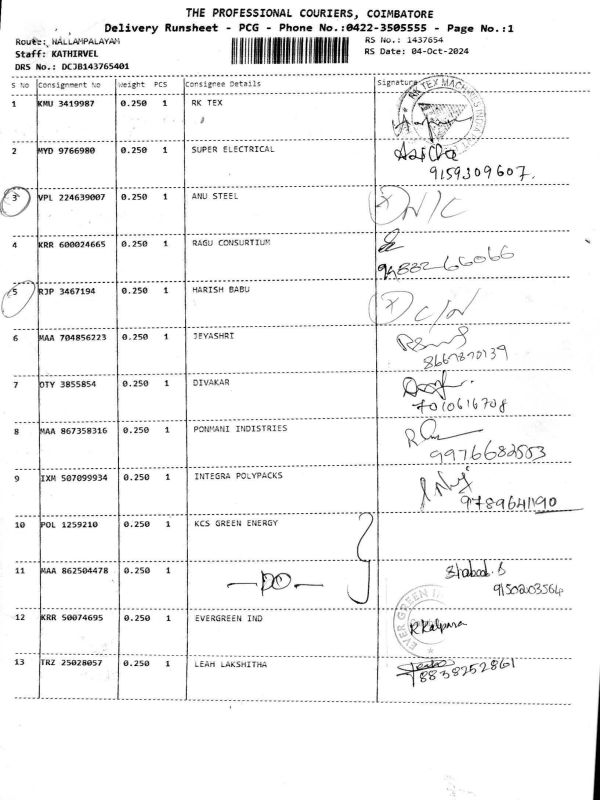 THE PROFESSIONAL COURIERS, COIMBATORE
Delivery Runsheet - PCG - Phone No.:0422-3505555 - Page No.:1
Route: NALLAMPALAYAM RS No.: 1437654
Staff: KATHIRVEL RS Date: 04-Oct-2024
DRS No.: DCJB143765401
S No Consignment No Weight PCS Consignee Details Signature
1 KMU 3419987 0.250 1 RK TEX
RK TEX
2 MYD 9766980 0.250 1 SUPER ELECTRICAL
9159309607.
3 VPL 224639007 0.250 1 ANU STEEL N/C
4 KRR 600024665 0.250 1 RAGU CONSURTIUM
5 RJP 3467194 0.250 1 HARISH BABU
6 MAA 704856223 0.250 1 JEYASHRI
7 DTY 3855854 0.250 1 DIVAKAR
7010616708
8 MAA 867358316 0.250 1 PONMANI INDISTRIES
9976682553
9 IXM 507099934 0.250 1 INTEGRA POLYPACKS
9789641190
10 POL 1259210 0.250 1 KCS GREEN ENERGY
11 MAA 862504478 0.250 1
9150203564
12 KRR 50074695 0.250 1 EVERGREEN IND
EVER GREEN
R Kalpana
13 TRZ 25028057 0.250 1 LEAH LAKSHITHA
8838252861